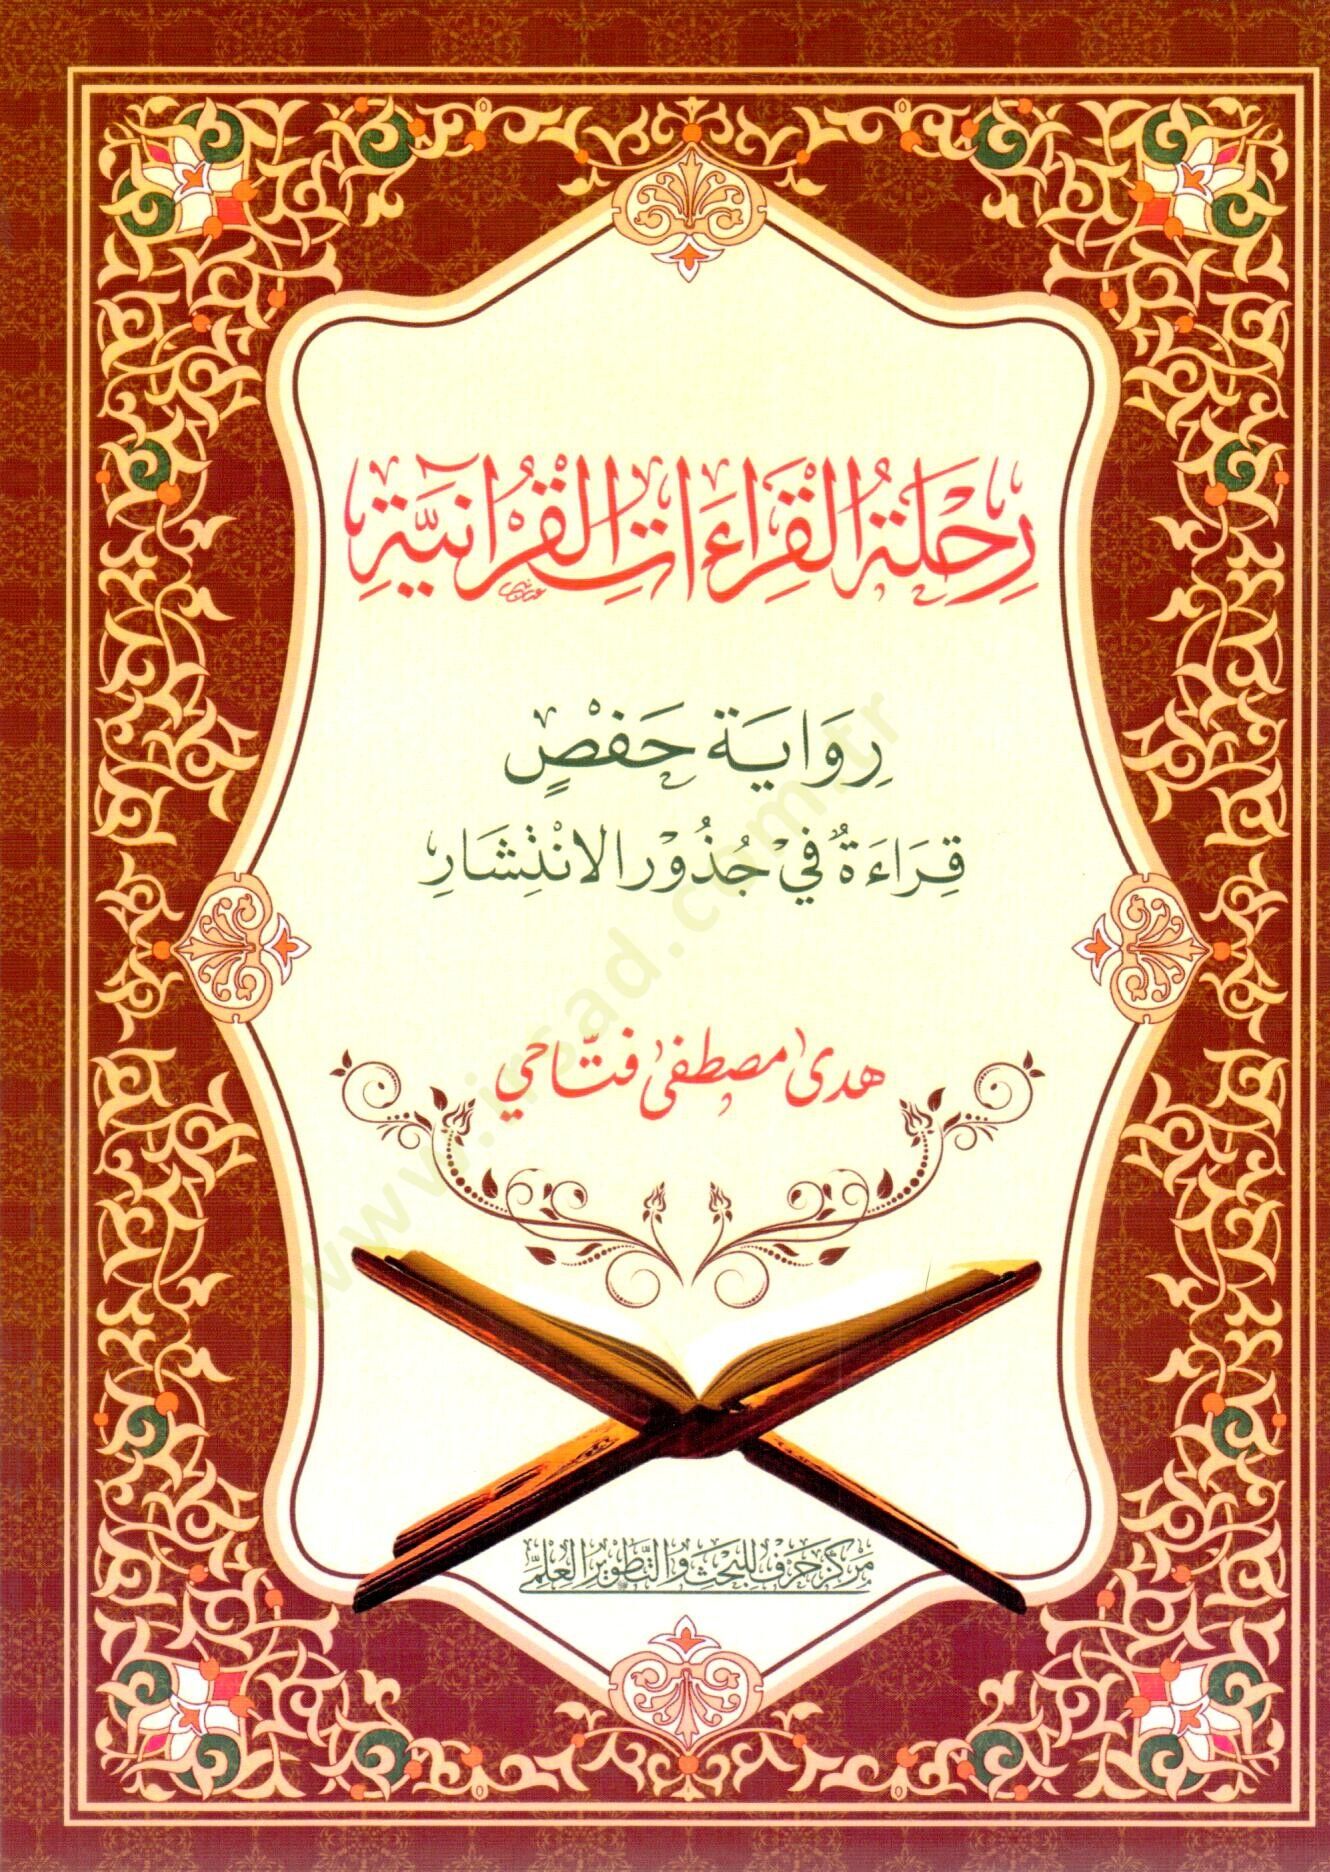 رِحْلَةُ الْقِرَاءَاتِ الْقُرْآنِيَّةِ
رِوَايَة حَفْصٍ
قِرَاءَةٌ فِي جُذُوْرِ الانْتِشَارِ
هدى مصطفى فتّاحي
مَركَز حَرْف لِلبَحْثِ وَالتَّطْوِيْرِ الْعِلْمِي
www.irsad.com.tr